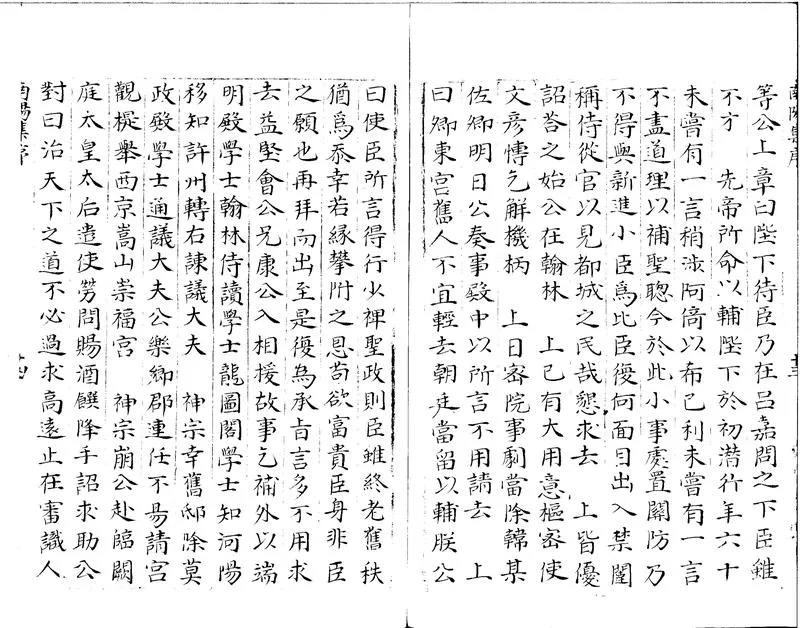 等公上章曰陛下待臣乃在呂嘉問之下臣雖
不才　先帝所命以輔陛下於初潛行年六十
未嘗有一言稍涉阿倚以布已利未嘗有一言
不盡道理以補聖聰今於此小事處置關防乃
不得與新進小臣爲比臣復何面目出入禁闥
稱侍從官以見都城之民哉懇求去　上皆優
詔荅之始公在翰林　上已有大用意樞密使
文彥愽乞解機柄　上日密院事劇當除韓某
佐卿明日公奏事殿中以所言不用請去　上
曰卿東宮舊人不宜輕去朝廷當留以輔朕公
曰使臣所言得行少裨聖政則臣雖終老舊秩
猶爲忝幸若緣攀附之恩苟欲富貴臣身非臣
之願也再拜而出至是復為承旨言多不用求
去益堅會公兄康公入相援故事乞補外以端
明殿學士翰林侍讀學士龍圖閣學士知河陽
移知許州轉右諫議大夫　神宗幸舊邸除莫
政殿學士通議大夫公樂鄉郡連任不昜請宮
觀提舉西京嵩山崇福宮　神宗崩公赴臨闕
庭太皇太后遣使勞問賜酒饌降手詔求助公
對曰治天下之道不必過求高遠止在審識人
南陽集序
十四